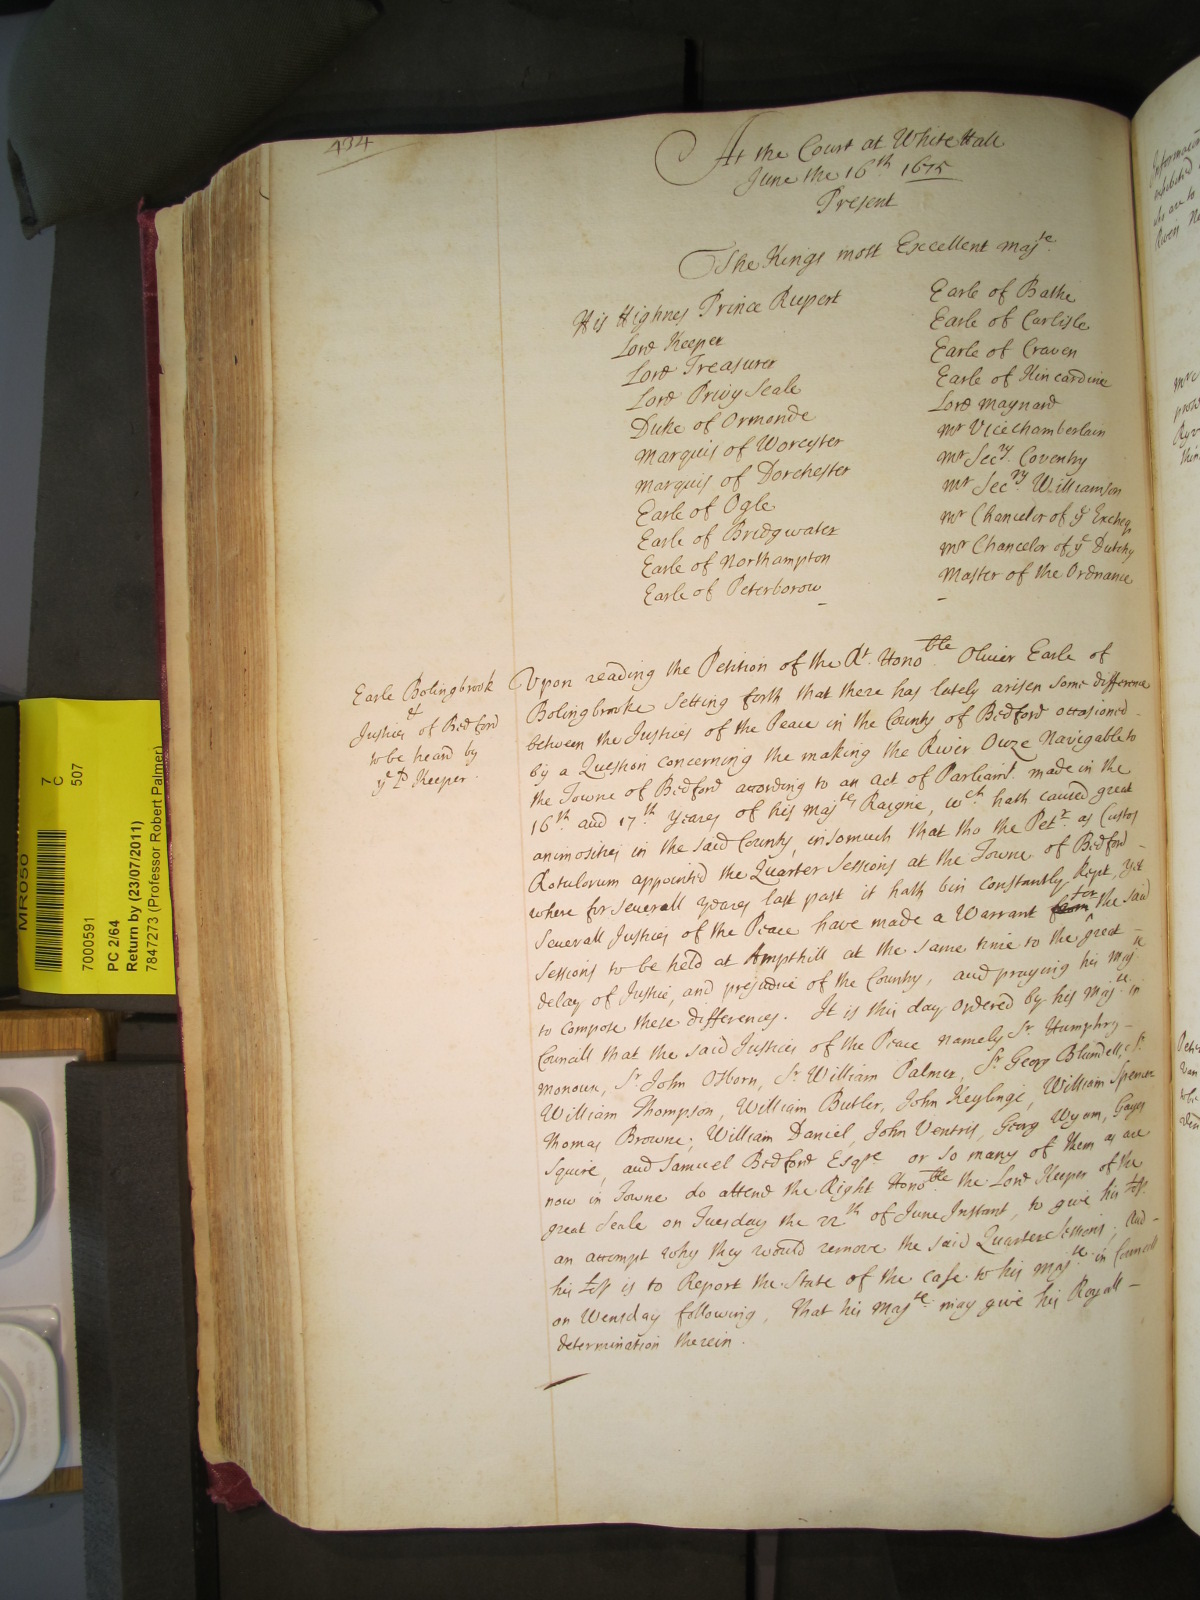 434
At the Court at White Hall
June the 16th 1675
Present
The Kings most Excellent majte.
His Highnes Prince Rupert
Lord Keeper
Lord Treasurer
Lord Privy Seale
Duke of Ormonde
Marquis of Worcester
Marquis of Dorchester
Earle of Ogle
Earle of Bridgwater
Earle of Northampton
Earle of Peterborow
Earle of Bathe
Earle of Carlisle
Earle of Craven
Earle of Kincardine
Lord Maynard
Mr Vicechamberlain
Mr Secry. Coventry
Mr Secry Williamson
Mr Chancelor of ye Excheqr
Mr Chancelor of ye Dutchy
Master of the Ordnance
Earle Bolingbrook
&
Justices of Bedford
to be heard by
ye Ld Keeper.
Upon reading the Petition of the Rt. Honoble Oliver Earle of
Bolingbrooke Setting forth that there has lately arisen some difference
between the Justices of the Peace in the County of Bedford occasioned
by a Question concerning the making the River Ouze Navigable to
the Towne of Bedford according to an act of Parliamt. made in the
16th. and 17th. Yeares of his Majtes Raigne, wch. hath caused great
animosities in the said County, insomuch that tho the Petr. as Custos
Rotulorum appointed the Quarter Sessions at the Towne of Bedford
where for severall yeares last past it hath bin constantly kept, Yet
severall Justices of the Peace have made a Warrant from for the said
Sessions to be held at Ampthill at the same time to the great
delay of Justice, and prejudice of the Country, and praying his Majte
to compose these differences. It is this day ordered by his Majte. in
Councill that the said Justices of the Peace namely Sr. Humphry
Monoux, Sr. John Osborn, Sr. William Palmer, Sr. Georg Blundell, Sr.
William Thompson, William Butler, John Keylinge, William Spencer
Thomas Browne; William Daniel, John Ventris, Georg Wynn, Gayes
Squire, and Samuel Bedford Esqre. or so many of them as are
now in Towne do attend the Right Honoble the Lord Keeper of the
great Seale on Tuesday the 22th of June Instant, to give his Lop.
an attempt why they would remove the said Quarter Sessions; And
his Lop is to Report the State of the case to his Majte in Councill
on Wensday following, That his Majte. may give his Royall
determination therein.
MR050
7
C
507
7000591
PC 2/64
Return by (23/07/2011)
7847273 (Professor Robert Palmer)